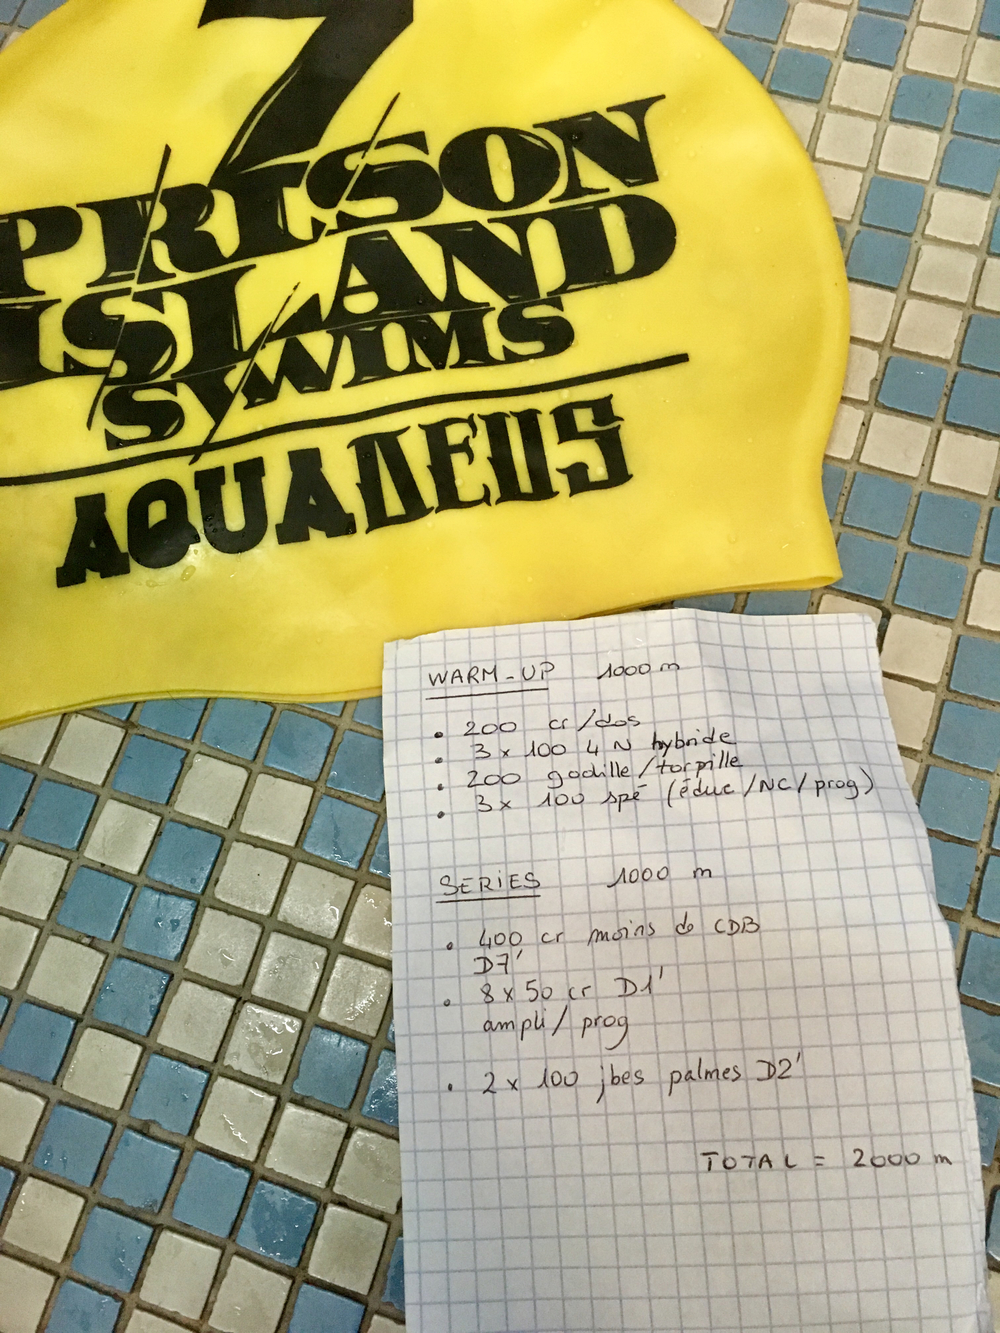 7
PRISON
ISLAND
SWIMS
AQUADEUS
WARM-UP 1000 m
• 200 cr/dos
• 3 x 100 4 N hybride
• 200 godille/torpille
• 3 x 100 spé (éduc/NC/prog)
SERIES 1000 m
• 400 cr moins de CDB
D7'
• 8 x 50 cr D1'
ampli/prog
• 2 x 100 jbes palmes D2'
TOTAL = 2000 m